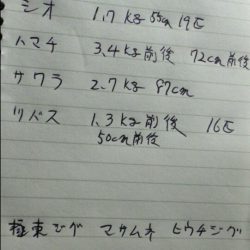 シオ 1.7kg 55cm 19匹
ハマチ 3.4kg前後 72cm前後
サワラ 2.7kg 87cm
ツバス 1.3kg前後 16匹
50cm前後
極東ジグ マサムネ ヒウチジグ